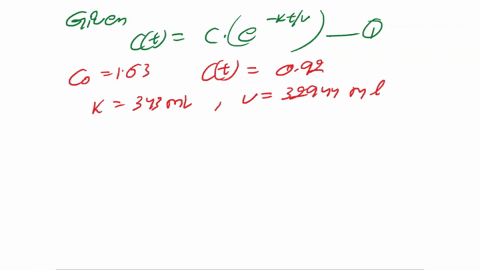 Given
C(t) = C.(e^{-kt/v}) — ①
C₀ = 1.63 C(t) = 0.92
K = 343 mL , V = 32944 ml